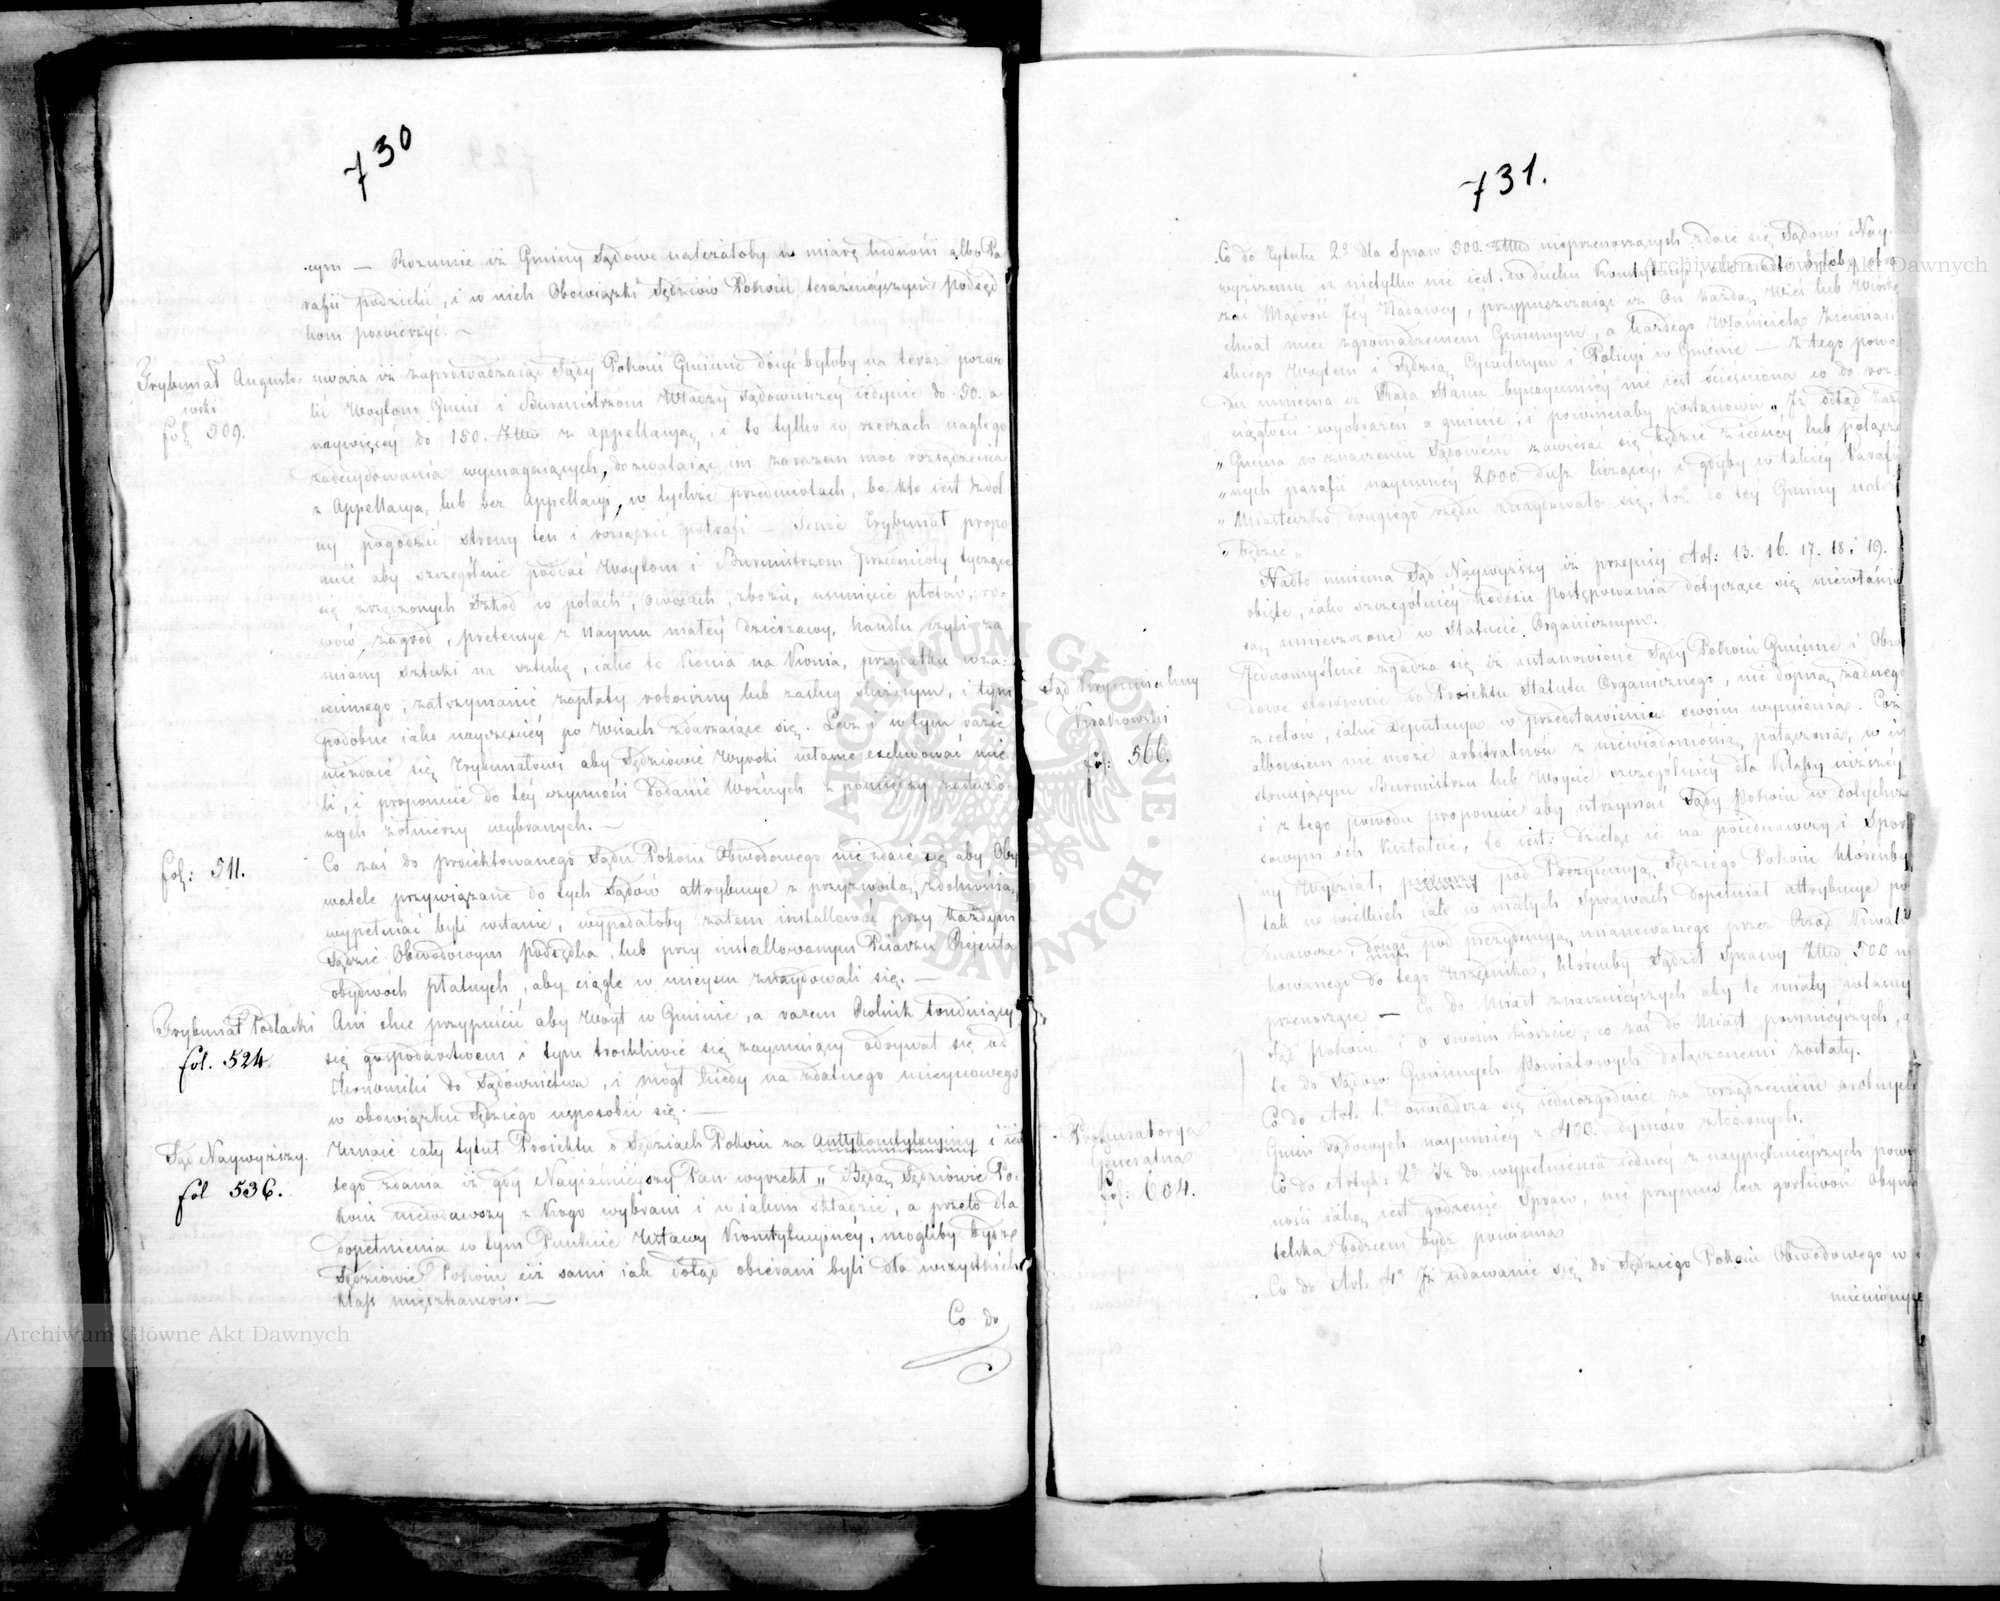 730
cym — Rozumie iż Gminy Sądowe należałoby w miarę ludności albo Pa
rafii podzielić, i w nich Obowiązki Sędziów Pokoiu teraźnieyszym podsęd
kom powierzyć. —
Trybunał Augusto-
wski
fol. 509.
uważa iż zaprowadzaiąc Sądy Pokoiu Gminne dosyć byłoby na teraz pozwo
lić Woytom Gmin i Burmistrzom Władzy Sądowniczey iedynie do 50. a
naywięcéy do 150. Złłp z appellacyą, i to tylko w rzeczach nagłego
zadecydowania wymagaiących, dozwalaiąc im zarazem moc rozsądzenia
z Appellacyą, lub bez Appellacyi, w tychże przedmiotach, bo kto iest zdol
ny pogodzić strony ten i rozsądzić potrafi — Tenże Trybunał propo
nuie aby szczególnie poddać Woytom i Burmistrzom przedmioty tyczące
się zrządzonych Szkod w polach, owocach, zbożu, usunięcie płotów, ro-
wów, zagrod, pretensye z Naymu małey dzierżawy, handlu czyli za
miany sztuki na sztukę, iako to Konia na Konia, przydatku wza-
iemnego, zatrzymanie zapłaty robocizny lub zasług służącym, i tym
podobne iako nayczęściéy po Wsiach zdarzaiące się. Lecz i w tym razie
niezdaie się Trybunałowi aby Sędziowie Wyroki własne exekwować mie
li, i proponuie do téy czynności Podanie Woźnych z pomiędzy zasłużo-
nych żołnierzy wybranych. —
fol: 511.
Co zaś do proiektowanego Sądu Pokoiu Obwodowego nie zdaie się aby Oby
watele przywiązane do tych Sądów attrybucye z przyzwoitą zdolnością
wypełniać byli wstanie, wypadałoby zatem installować przy każdym
Sędzie Obwodowym Podsędka, lub przy installowanym Pisarzu Rejenta
obydwóch płatnych, aby ciągle w mieyscu znaydowali się. —
Trybunał Podlaski
fol. 524
Ani chce przypuścić aby Woyt w Gminie, a razem Rolnik trudniący
się gospodarstwem i tym troskliwie się zaymuiący odrywał się od
Ekonomiki do Sądownictwa, i mógł kiedy na zdatnego mieyscowego
w obowiązku Sędziego usposobić się. —
Sąd Naywyższy.
fol 536.
Uznaie cały tytuł Proiektu o Sędziach Pokoiu za Antykonstytucyiny i iest
tego zdania iż gdy Nayiaśnieyszy Pan wyrzekł „ Będą Sędziowie Po-
koiu niedodawszy z Kogo wybrani i w iakim składzie, a przeto dla
dopełnienia w tym Punkcie Ustawy Konstytucyinéy, mogliby bydź
Sędziowie Pokoiu ciż sami iak dotąd obierani byli dla wszystkich
klass mieszkańców. —
Co do
731.
Co do Tytułu 2º dla Spraw 500. Złłp nieprzenoszących zdaie się Sądowi Nay
wyższemu iż nietylko nie iest w duchu Konstytucyi ale nadto byłoby obra
żać Mądrość Jéy Nadawcy, przypuszczaiąc iż On każdą Wieś lub Wioskę
chciał mieć zgromadzeniem Gminnym, a każdego Właściciela Ziemiań
skiego Woytem i Sędzią Cywilnym i Policyi w Gminie — Z tego powo
du mniema iż Rada Stanu bynaymniéy nie iest ścieśniona co do roz
ciągłości wyobrażeń o gminie, i powinnaby postanowić „ Iż odtąd każda
„ Gmina w znaczeniu Sądowém zawierać się będzie z iednéy lub połączo
„ nych parafii naymniéy 2000 dusz liczącéy, i gdyby w takiéy Parafii
„ Miasteczko drugiego rzędu znaydowało się, toż do téy Gminy należ
„ będzie „
Nadto mniema Sąd Naywyższy iż przepisy Art: 13. 16. 17. 18 i 19.
obięte, iako szczególniéy Kodexu Postępowania dotyczące się niewłaści
są umieszczone w Statucie Organicznym.
Sąd Kryminalny
Krakowski
fol: 566.
Jednomyślnie zgadza się iż ustanowione Sądy Pokoiu Gminne i Obwo
dowe stosownie do Proiektu Statutu Organicznego, nie dopną żadnego
z celów, iakie Deputacya w przedstawieniu swoim wymienia. Coż
albowiem nie może arbitralność z niewiadomością połączoná, w in
struiącym Burmistrzu lub Woycie szczególniéy dla Klassy niższéy
i z tego powodu proponuie aby utrzymać Sądy Pokoiu w dotychcza
sowym ich kształcie, to iest: dzieląc ie na poiednawczy i Spor
ny Wydział, pierwszy pod Prezydencyą Sędziego Pokoiu którenby
tak w wielkich iak w małych Sprawach dopełniał attrybucye po
dnawcze, drugi pod prezydencyą mianowanego przez Rząd Kwalifi
kowanego do tego Urzędnika, którenby Sądził Sprawy Złłp 500 nie
przenoszące — Co do Miast znacznieyszych aby te miały własny
Sąd pokoiu, o swoim koszcie, co zaś do Miast pomnieyszych, a
te do Sądów Gminnych Powiatowych dołączonemi zostały.
Prokuratorya
Generalna
fol: 604.
Co do Art. 1º oświadcza się iednozgodnie za urządzeniem osobnych
Gmin sądowych naymniéy z 400. dymów złożonych.
Co do Artyk: 2º Iż do wypełnienia iednéy z naypięknieyszych powin
ności iaką iest godzenie Spraw, nie przymus lecz gorliwość obywa
telska bodźcem bydź powinna
Co do Art. 4º Iż udawanie się do Sędziego Pokoiu Obwodowego w
mieniony